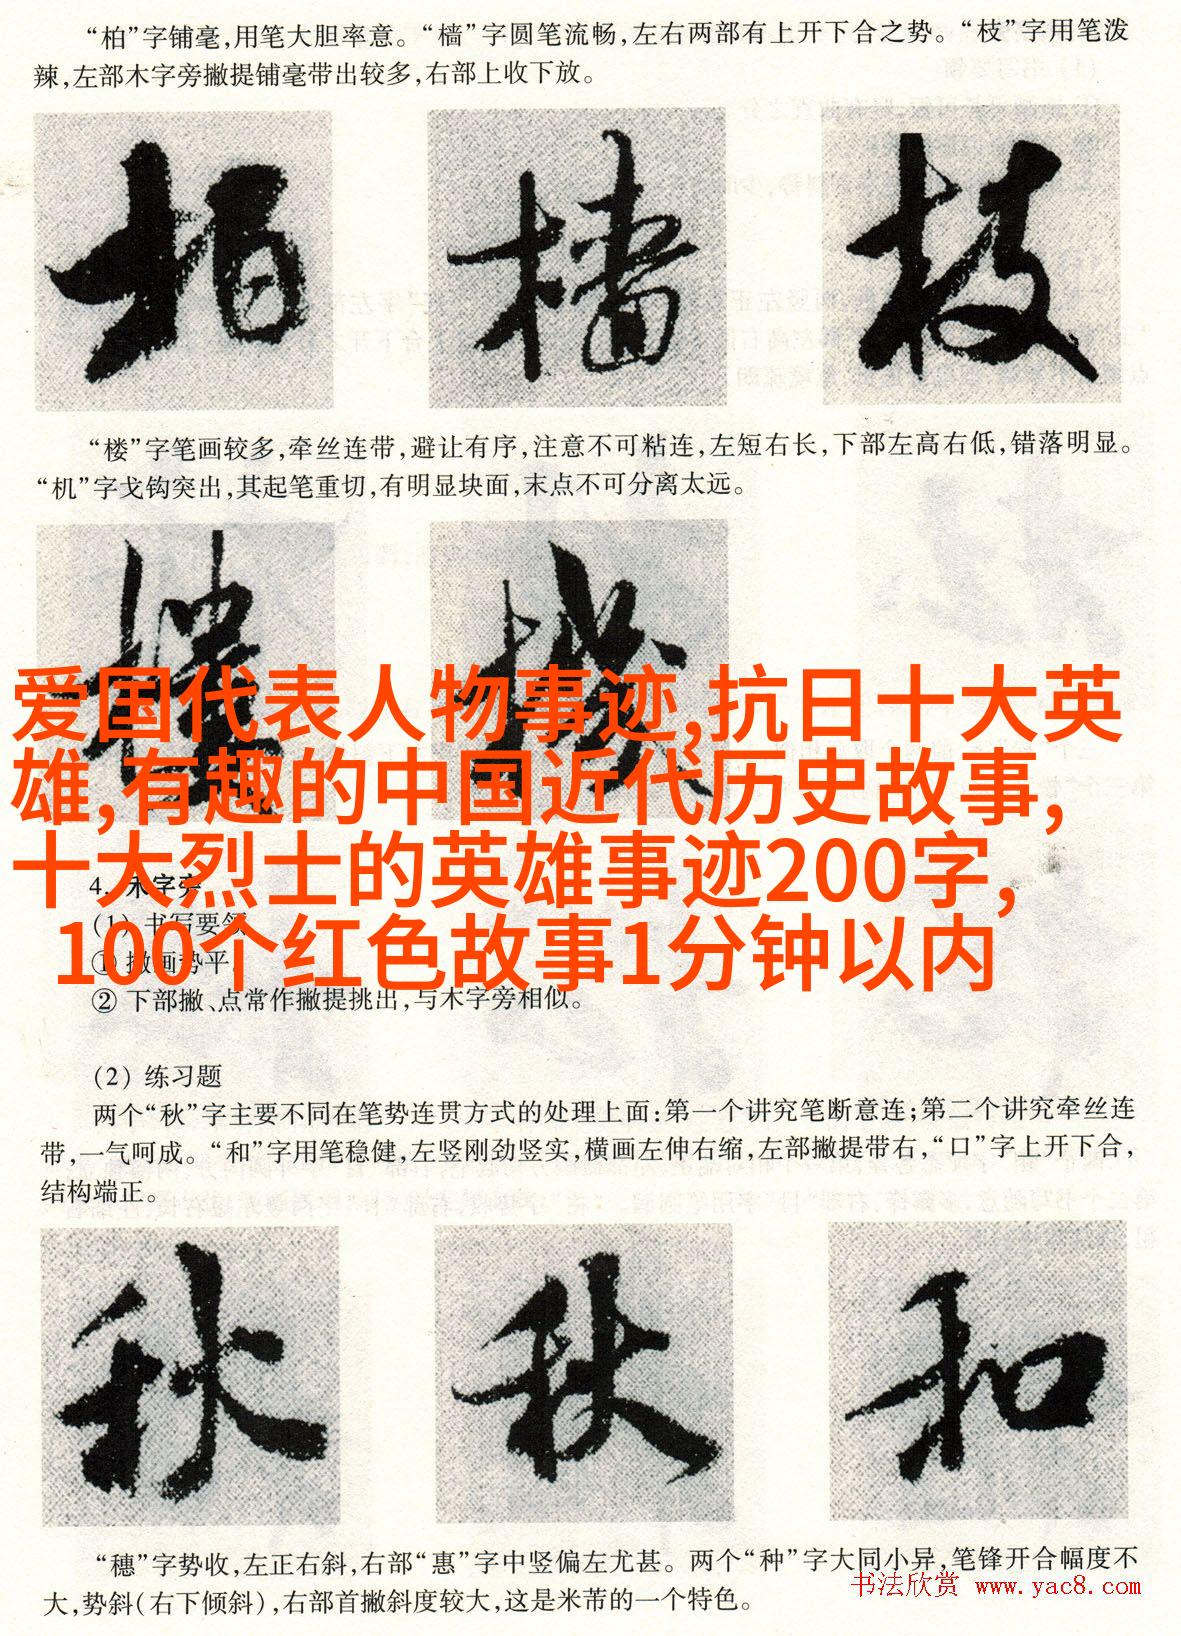 “柏”字铺毫,用笔大胆率意。“樯”字圆笔流畅,左右两部有上开下合之势。“枝”字用笔泼
辣,左部木字旁撇提铺毫带出较多,右部上收下放。
柏 樯 枝
“楼”字笔画较多,牵丝连带,避让有序,注意不可粘连,左短右长,下部左高右低,错落明显。
“机”字戈钩突出,其起笔重切,有明显块面,末点不可分离太远。
爱国代表人物事迹,抗日十大英
雄,有趣的中国近代历史故事,
十大烈士的英雄事迹200字,
100个红色故事1分钟以内
4. 禾字旁
(1) 书写要领
① 撇画势平。
② 下部撇、点常作撇提挑出,与木字旁相似。
(2) 练习题
两个“秋”字主要不同在笔势连贯方式的处理上面:第一个讲究笔断意连;第二个讲究牵丝连
带,一气呵成。“和”字用笔稳健,左竖刚劲竖实,横画左伸右缩,左部撇提带右,“口”字上开下合,
结构端正。
秋 秋 和
“穗”字势收,左正右斜,右部“惠”字中竖偏左尤甚。两个“种”字大同小异,笔锋开合幅度不
大,势斜(右下倾斜),右部首撇斜度较大,这是米芾的一个特色。
书法欣赏 www.yac8.com